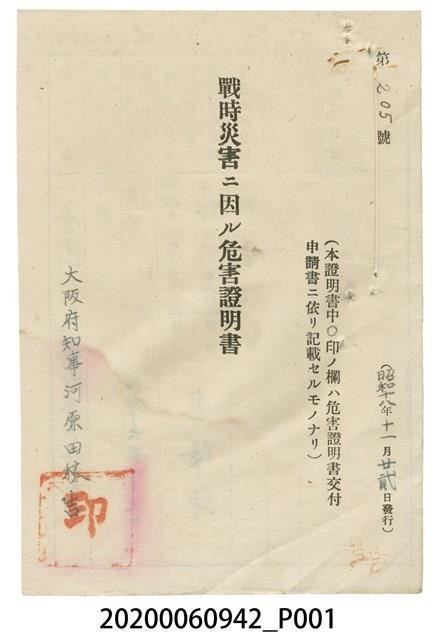 第205號
(昭和十八年十一月廿貳日發行)
(本證明書中〇印ノ欄ハ危害證明書交付
申請書ニ依リ記載セルモノナリ)
戰時災害ニ因ル危害證明書
大阪府知事河原田稼吉
印
20200060942_P001